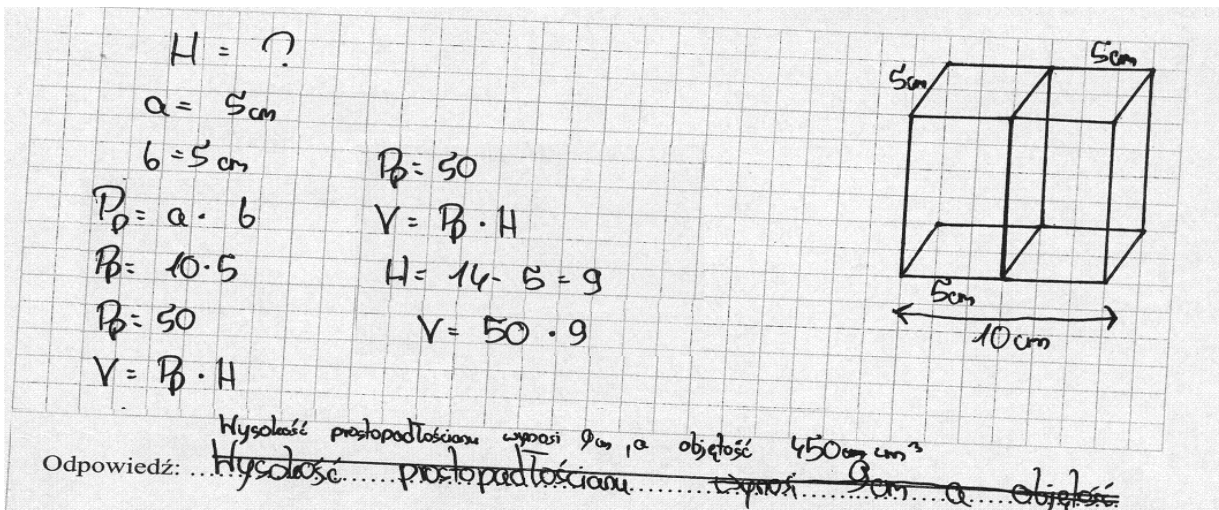 H = ?
a = 5 cm
b = 5 cm
Pp = a · b
Pp = 10 · 5
Pp = 50
V = Pp · H
Pp = 50
V = Pp · H
H = 14 - 5 = 9
V = 50 · 9
5cm
5cm
5cm
10 cm
Wysokość prostopadłościanu wynosi 9cm, a objętość 450 cm³
Odpowiedź: Wysokość prostopadłościanu wynosi 9cm a objętość